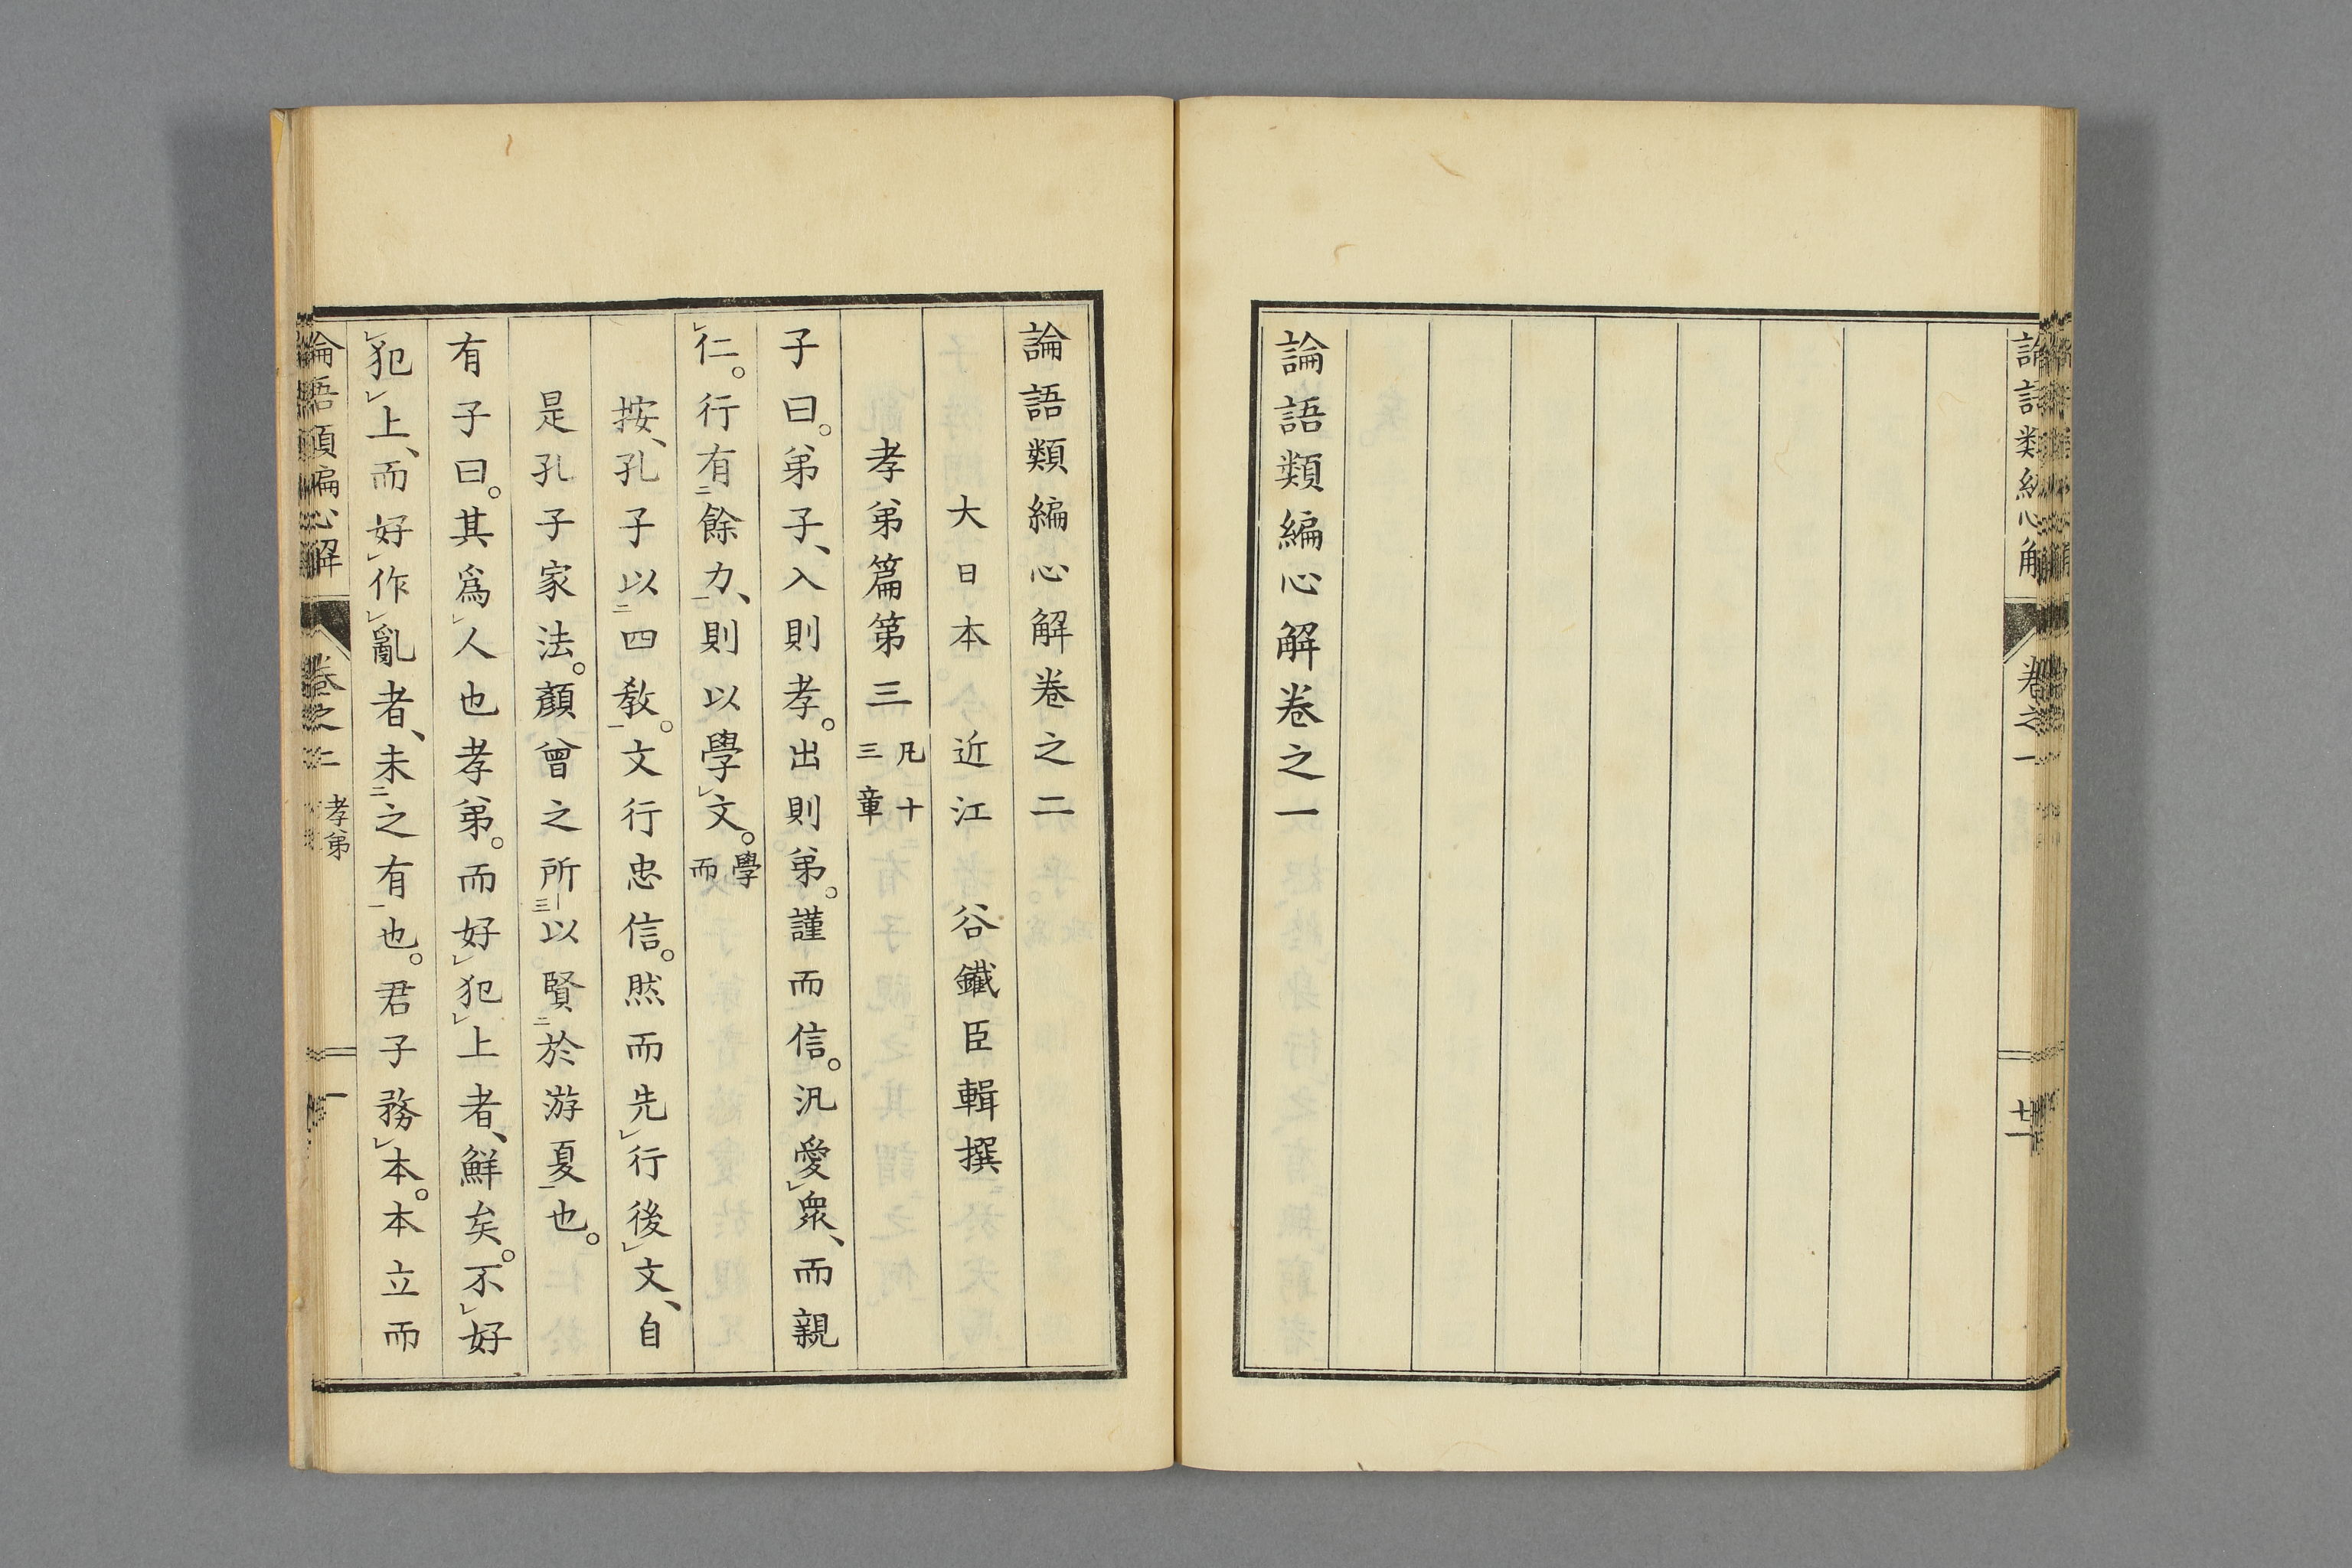 論語類編心解卷之一
論語類編心解卷之二
大日本 近江 谷鐵臣輯撰
孝弟篇第三 凡十三章
子曰。弟子、入則孝。出則弟。謹而信。汎愛㆑衆、而親
㆑仁。行有㆓餘力㆒、則以學㆑文。學而
按、孔子以㆓四教㆒。文行忠信。然而先㆑行後㆑文、自
是孔子家法。顏曾之所㆔以賢㆓於游夏㆒也。
有子曰。其爲㆑人也孝弟。而好㆑犯㆑上者、鮮矣。不㆑好
㆑犯㆑上、而好㆑作㆑亂者、未㆓之有㆒也。君子務㆑本。本立而
論語類編心解 卷之二 孝弟 一